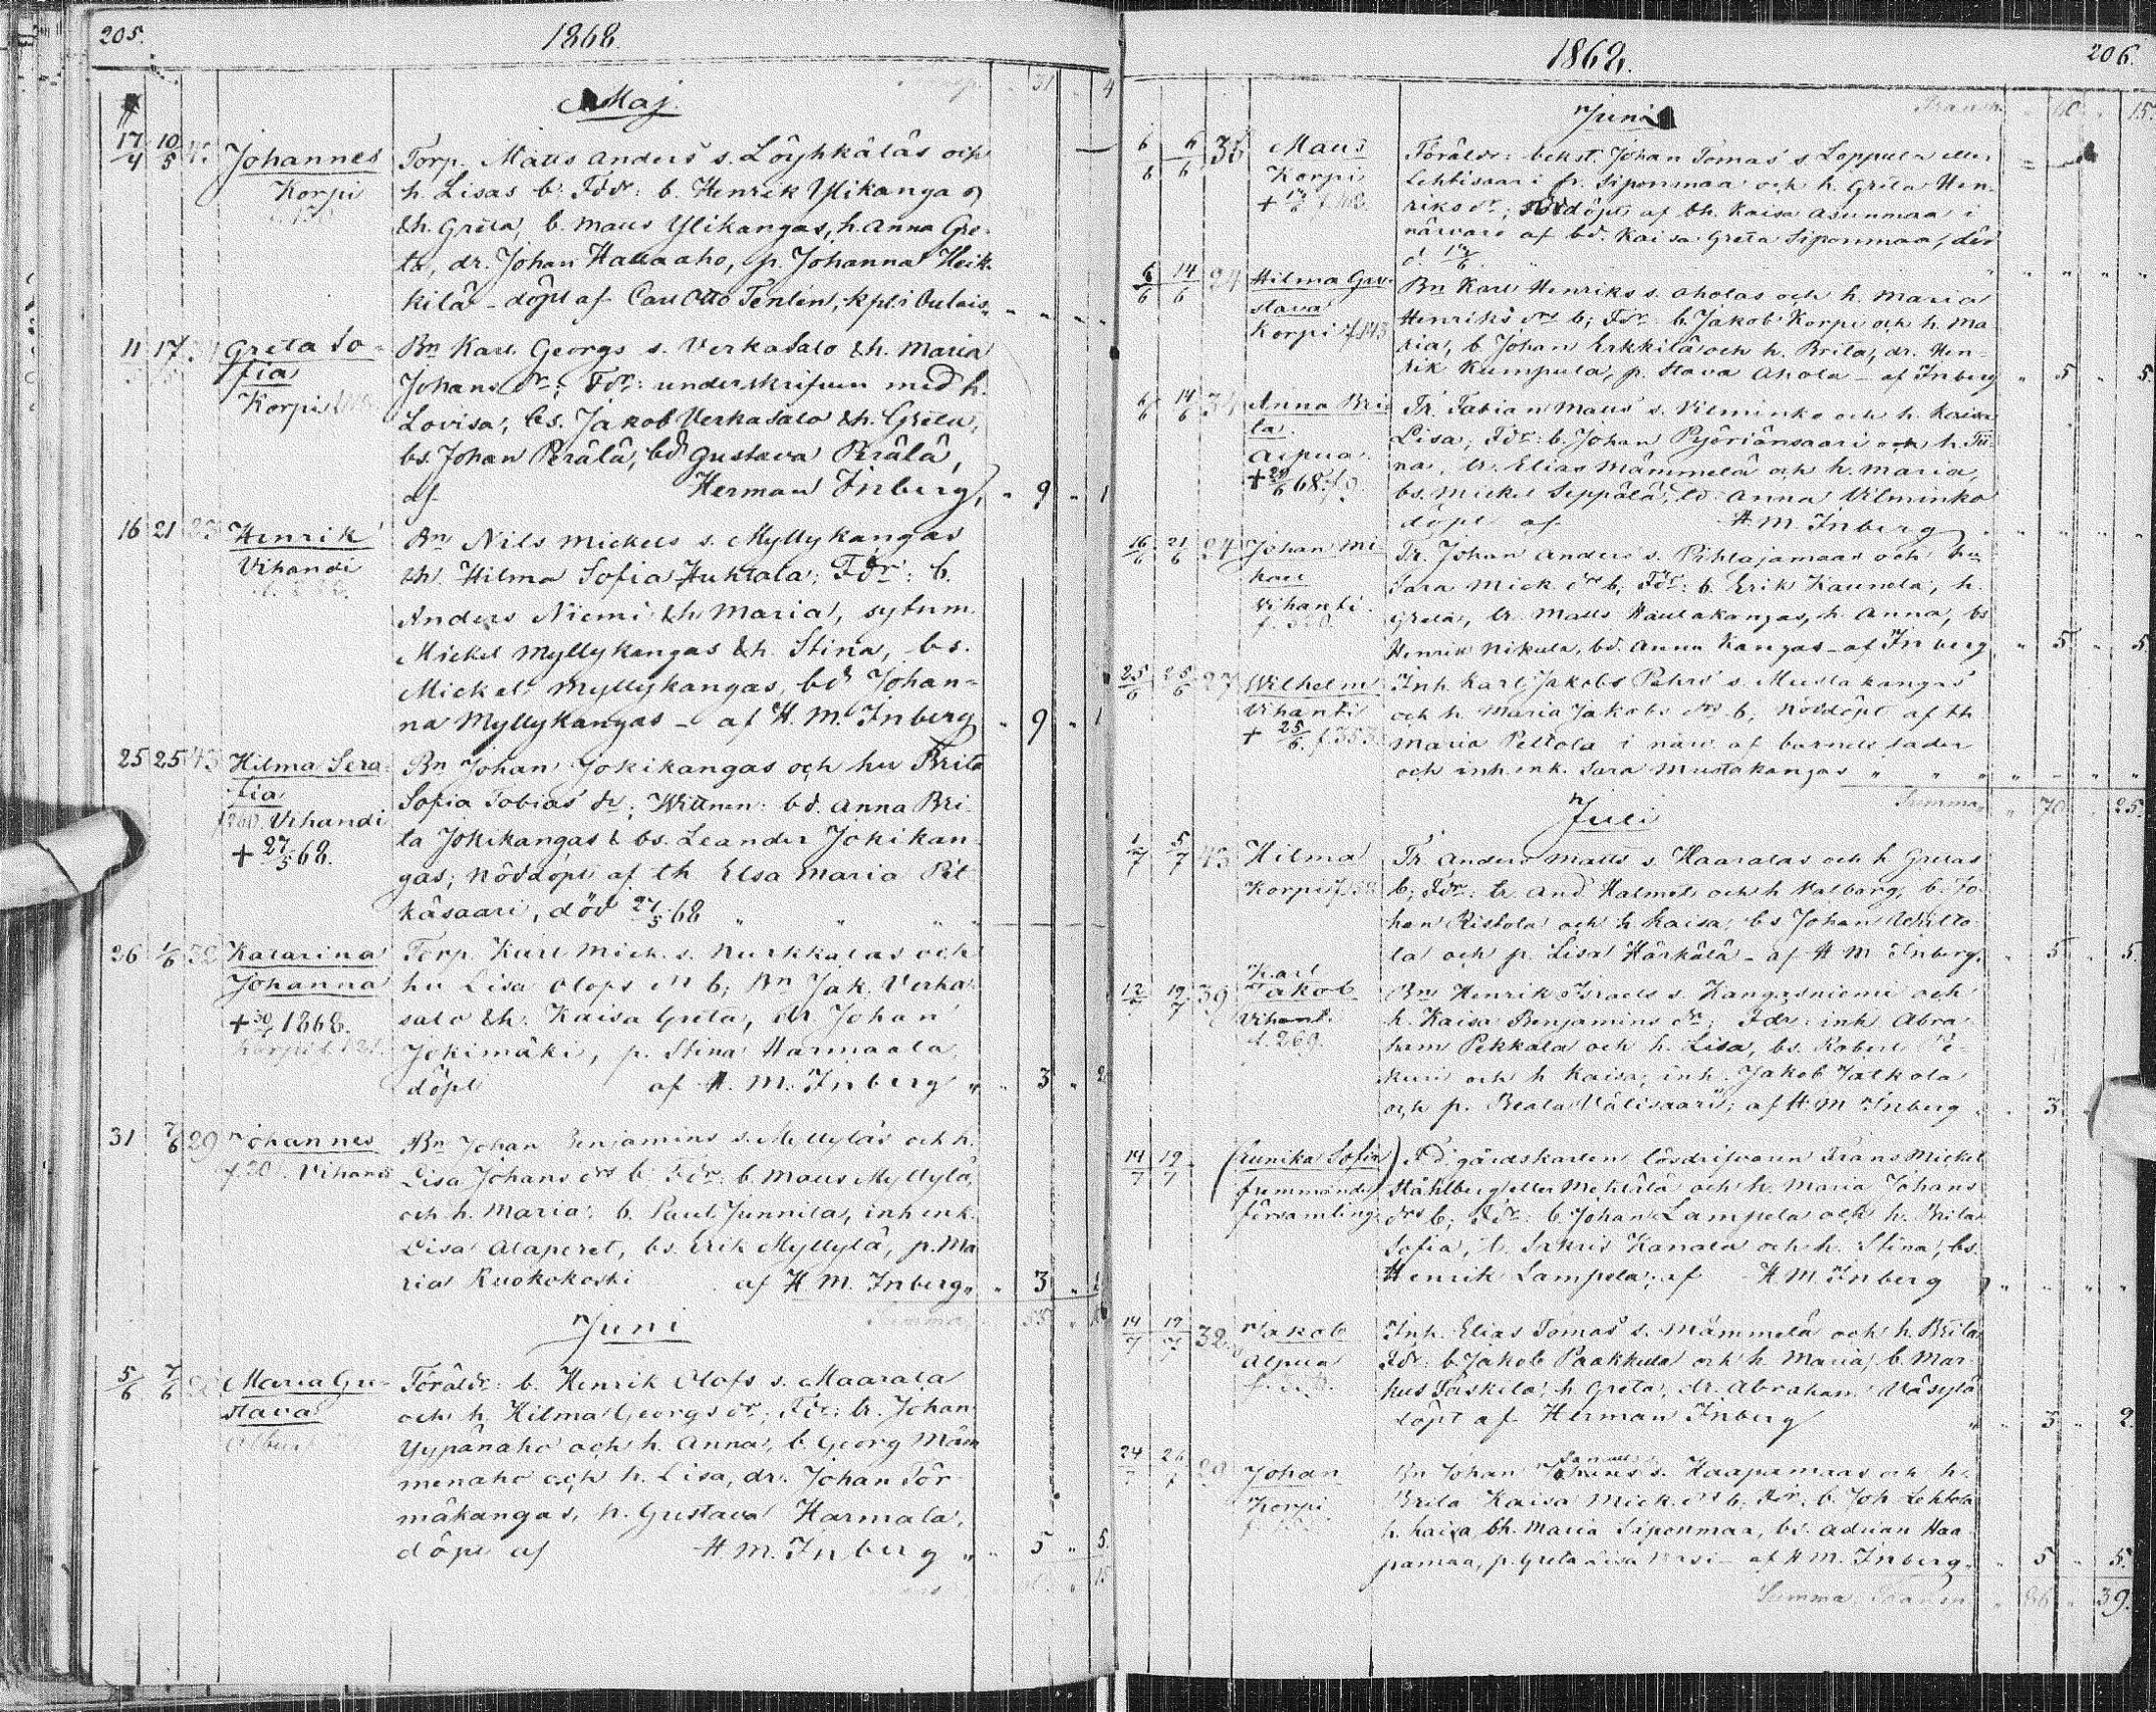 205.
1868.
Maj.
31 4
17/4 10/5 Johannes Torp. Matts Anders s. Löyhkäläs och
Korpi h. Lisas b. Fdr: b. Henrik Ylikanga o
&h. Greta, b. Matts Ylikangas, h. Anna Gre-
ta, dr. Johan Hallaaho, p. Johanna Heik-
kilä - döpt af Carl Otto Tenlén, kpl. i Oulais.
11 17 Greta So- Bn Karl Georgs s. Verkasalo &h. Maria
fia Johans dr; Fdr: underskrifven med h.
Korpi Lovisa, bs. Jakob Verkasalo &h. Greta,
bs. Johan Perälä, bd Gustava Perälä,
af Herman Inberg, 9 1
16 21 Henrik Bn Nils Mickels s. Myllykangas
Vihandi &h Hilma Sofia Huktala; Fdr: b.
Anders Niemi &h Maria, sytnm.
Mickel Myllykangas &h. Stina, bs.
Mickel Myllykangas, bd Johan-
na Myllykangas - af H. M. Inberg 9 1
25 25 43 Hilma Sera- Bn Johan Jokikangas och hu Brita
fia Sofia Tobias dr; Wittnen: bd. Anna Bri-
f260. Vihandi ta Jokikangas & bs. Leander Jokikan-
+ 27/5 68. gas; nöddöpt af th Elsa Maria Pit-
käsaari, död 27/5 68
26 1/6 32 Katarina Torp. Karl Mich. s. Nurkkalas och
Johanna hu Lisa Olofs dr b; Bn Jak. Verka-
+ 30/ 1868. salo &h. Kaisa Greta, dr Johan
Korpi Jokimäki, p. Stina Harmaala
döpt af H. M. Inberg 3 2
31 7/6 29 Johannes Bn Johan Benjamins s. Myllyläs och h.
Vihandi Lisa Johans drs b; Fdr: b. Matts Myllylä,
och h. Maria, b. Paul Junnila, inh enk.
Lisa Alaperet, bs. Erik Myllylä, p. Ma
ria Ruokokoski af H M. Inberg 3 1
Summa 55
Juni
5/6 7/6 Maria Gu- Föräldr: b. Henrik Olofs s. Maarala
stava och h. Hilma Georgs dr; Fdr: b. Johan
Yypänaho och h. Anna, b. Georg Mäm
menaho och h. Lisa, dr. Johan Tör
mäkangas, p. Gustava Harmala,
döpt af H. M. Inberg 5 5.
15
1868.
206.
Juni
Transp. 60 15.
6/6 6/6 35 Matts Föräldr: bekst. Johan Tomas s Leppula eller
Korpi Lehtisaari fr. Siponmaa och h. Greta Hen-
+ riks dr; nöddöpt af bh. Kaisa Asunmaa i
närvaro af bd. Kaisa Greta Siponmaa, död
6/6 14/6 24 Hilma Gu- Bn Karl Henriks s. Aholas och h. Maria
stava Henriks drs b; Fdr: b. Jakob Korpi och h. Ma
Korpi f.143 ria, b. Johan Erkkilä och h. Brita, dr. Hen-
rik Kumpula, p. Stava Ahola - af Inberg 5 5
6/6 14/6 Anna Bri- Tr. Fabian Matts s. Vilminko och h. Kaisa
ta. Lisa; Fdr: b. Johan Pyöriänsaari och h. Tii-
Alpua na, b. Elias Mämmelä och h. Maria,
+ 29/6 68. bs. Mickel Seppälä, bd. Anna Vilminko
döpt af H M. Inberg
16/6 21/6 24 Johan Mi- Tr. Johan Anders s. Pihlajamaas och hu
kael Sara Mick. drs b; Fdr: b. Erik Kaunela, h.
Vihanti. Greta, b. Matts Hautakangas, h. Anna, bs
Henrik Nikula, bd. Anna Kangas - af Inberg 5 5
25/6 25/6 27 Wilhelm Inh Karl Jakobs Pehrs s. Mustakangas
Vihanti och h Maria Jakobs drs b, nöddöpt af th
+ 25/6. f. 353. Maria Peltola i närv. af barnets fader
och inh. enk. Sara Mustakangas
Summa 70 25.
Juli
1/7 5/7 43 Hilma Tr. Anders Matts s. Haaralas och h Gretas
Korpi b; Fdr: b. And Halmet och h Valborg, b. Jo-
han Ristola och h Kaisa, bs Johan
la och p. Lisa Härkälä - af H M Inberg, 5 5
12/7 19/7 39 Karl
Jakob Bn Henrik Israels s. Kangasniemi och
Vihanti h. Kaisa Benjamins dr; Fdr: inh Abra-
f. 269. ham Pekkala och h. Lisa, bs. Robert Pe-
kuri och h Kaisa, inh. Jakob Jalkola
och p. Beata Välisaari; af H M Inberg 3
14/7 19/7 (Eunika Sofia) F.d. gårdskarlen lösdrifvaren Frans Mickel
frummande Ståhlberg eller Metsälä och h. Maria Johans
församling drs b; Fdr: b. Johan Lampela och h. Brita
Sofia, b. Sakris Kanala och h. Stina, bs.
Henrik Lampela; af H M Inberg
14/7 19/7 32 Jakob Inh. Elias Tomas s. Mämmelä och h. Brita
Alpua Fdr: b. Jakob Paakkula och h. Maria, b. Mar-
kus Taskila, h. Greta, dr. Abraham Väsylä
döpt af Herman Inberg 3 2.
24/7 26/7 29 Johan Bn Johan s. Haapamaas och h.
Korpi Brita Kaisa Mick. drs b; Fdr: b. Joh Lehtola
h. Kaisa, bh. Maria Siponmaa, bs. Adrian Haa-
pamaa, p. Greta Lisa - af H M. Inberg 5 5.
Summa 86 39.